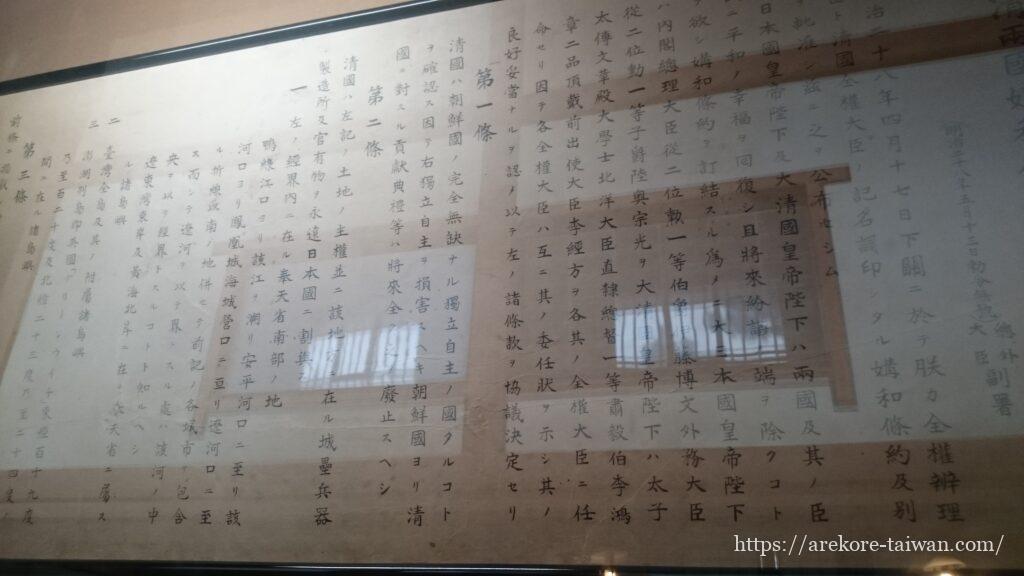 清兩國媾和
明治二十八年五月十三日
總
外
副署
治二十八年四月十七日下關ニ於テ朕カ全權辨理
ト清國全權大臣ノ記名調印シタル媾和條約及別
批准シ茲ニ之ヲ公布セシム
日本國皇帝陛下及大清國皇帝陛下ハ兩國及其ノ臣
ニ平和ノ幸福ヲ回復シ且將來紛議ノ端ヲ除クコト
ヲ欲シ媾和條約ヲ訂結スル爲メニ大日本國皇帝陛下
ハ內閣總理大臣從二位勳一等伯爵伊藤博文外務大臣
從二位勳一等子爵陸奧宗光ヲ大清國皇帝陛下ハ太子
太傅文華殿大學士北洋大臣直隸總督一等肅毅伯李鴻
章二品頂戴前出使大臣李經方ヲ各其ノ全權大臣ニ任
命セリ因テ各全權大臣ハ互ニ其ノ委任狀ヲ示シ其ノ
良好妥當ナルヲ認メ以テ左ノ諸條款ヲ協議決定セリ
第一條
清國ハ朝鮮國ノ完全無缺ナル獨立自主ノ國タルコト
ヲ確認ス因テ右獨立自主ヲ損害スヘキ朝鮮國ヨリ清
國ニ對スル貢獻典禮等ハ將來全ク之ヲ廢止スヘシ
第二條
清國ハ左記ノ土地ノ主權竝ニ該地方ニ在ル城壘兵器
製造所及官有物ヲ永遠日本國ニ割與ス
一 左ノ經界內ニ在ル奉天省南部ノ地
鴨綠江口ヨリ該江ヲ溯リ安平河口ニ至リ該
河口ヨリ鳳凰城海城營口ニ亘リ遼河口ニ至
ル折線以南ノ地併セテ前記ノ各城市ヲ包含
ス而シテ遼河ヲ以テ界トスル處ハ該河ノ中
央ヲ以テ經界トスルコトト知ルヘシ
遼東灣東岸及黃海北岸ニ在テ奉天省ニ屬ス
ル諸島嶼
二 臺灣全島及其ノ附屬諸島嶼
三 澎湖列島卽英國「グリーンウィチ」東經百十九度
乃至百二十度及北緯二十三度乃至二十四度ノ
間ニ在ル諸島嶼
第三條
前條ニ
https://arekore-taiwan.com/